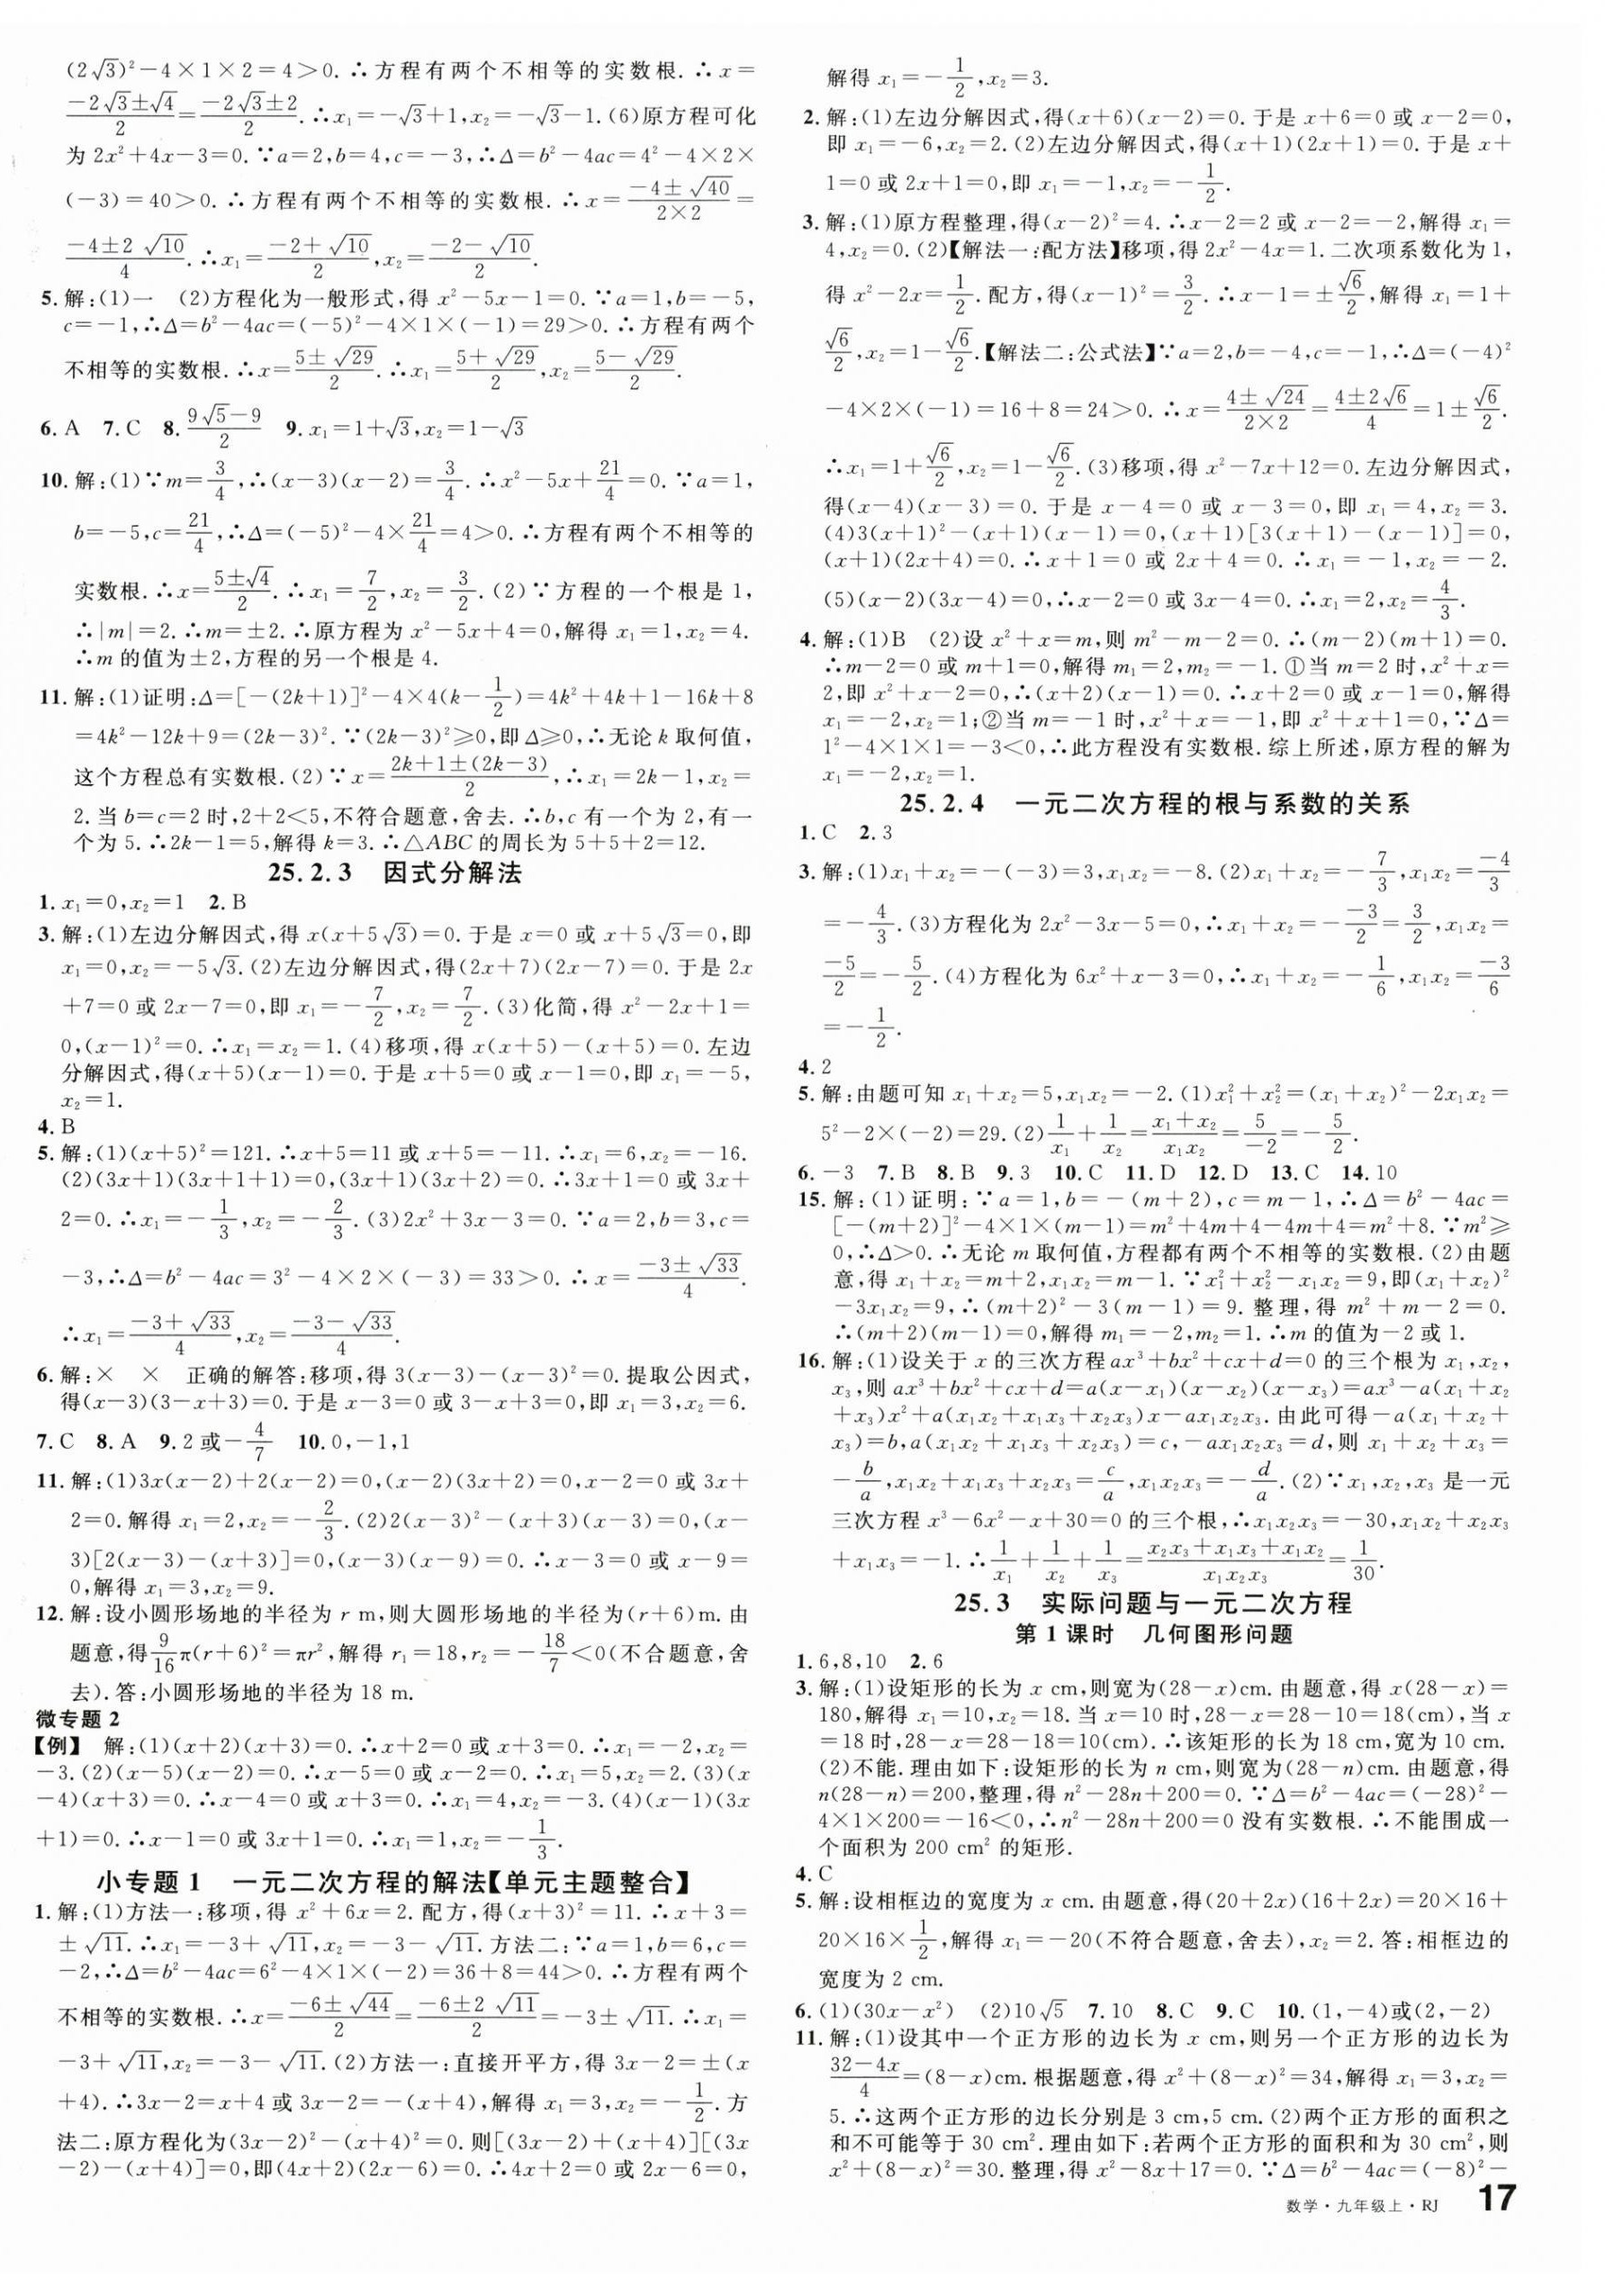 (2√3)²－4×1×2＝4＞0.∴方程有两个不相等的实数根.∴x＝
(−2√3±√4)/2＝(−2√3±2)/2.∴x₁＝－√3＋1,x₂＝－√3－1.(6)原方程可化
为2x²＋4x－3＝0.∵a＝2,b＝4,c＝－3,∴Δ＝b²－4ac＝4²－4×2×
(－3)＝40＞0.∴方程有两个不相等的实数根.∴x＝(−4±√40)/(2×2)＝
(−4±2√10)/4.∴x₁＝(−2＋√10)/2,x₂＝(−2－√10)/2.
5.解:(1)一 (2)方程化为一般形式,得x²－5x－1＝0.∵a＝1,b＝－5,
c＝－1,∴Δ＝b²－4ac＝(－5)²－4×1×(－1)＝29＞0.∴方程有两个
不相等的实数根.∴x＝(5±√29)/2.∴x₁＝(5＋√29)/2,x₂＝(5－√29)/2.
6.A 7.C 8.(9√5－9)/2 9.x₁＝1＋√3,x₂＝1－√3
10.解:(1)∵m＝3/4,∴(x－3)(x－2)＝3/4.∴x²－5x＋21/4＝0.∵a＝1,
b＝－5,c＝21/4,∴Δ＝(－5)²－4×21/4＝4＞0.∴方程有两个不相等的
实数根.∴x＝(5±√4)/2.∴x₁＝7/2,x₂＝3/2.(2)∵方程的一个根是1,
∴|m|＝2.∴m＝±2.∴原方程为x²－5x＋4＝0,解得x₁＝1,x₂＝4.
∴m的值为±2,方程的另一个根是4.
11.解:(1)证明:Δ＝[－(2k＋1)]²－4×4(k－1/2)＝4k²＋4k＋1－16k＋8
＝4k²－12k＋9＝(2k－3)².∵(2k－3)²≥0,即Δ≥0,∴无论k取何值,
这个方程总有实数根.(2)∵x＝(2k＋1±(2k－3))/2,∴x₁＝2k－1,x₂＝
2.当b＝c＝2时,2＋2＜5,不符合题意,舍去.∴b,c有一个为2,有一
个为5.∴2k－1＝5,解得k＝3.∴△ABC的周长为5＋5＋2＝12.
25.2.3 因式分解法
1.x₁＝0,x₂＝1 2.B
3.解:(1)左边分解因式,得x(x＋5√3)＝0.于是x＝0或x＋5√3＝0,即
x₁＝0,x₂＝－5√3.(2)左边分解因式,得(2x＋7)(2x－7)＝0.于是2x
＋7＝0或2x－7＝0,即x₁＝－7/2,x₂＝7/2.(3)化简,得x²－2x＋1＝
0,(x－1)²＝0.∴x₁＝x₂＝1.(4)移项,得x(x＋5)－(x＋5)＝0.左边
分解因式,得(x＋5)(x－1)＝0.于是x＋5＝0或x－1＝0,即x₁＝－5,
x₂＝1.
4.B
5.解:(1)(x＋5)²＝121.∴x＋5＝11或x＋5＝－11.∴x₁＝6,x₂＝－16.
(2)(3x＋1)(3x＋1＋1)＝0,(3x＋1)(3x＋2)＝0.∴3x＋1＝0或3x＋
2＝0.∴x₁＝－1/3,x₂＝－2/3.(3)2x²＋3x－3＝0.∵a＝2,b＝3,c＝
－3,∴Δ＝b²－4ac＝3²－4×2×(－3)＝33＞0.∴x＝(−3±√33)/4.
∴x₁＝(−3＋√33)/4,x₂＝(−3－√33)/4.
6.解:× × 正确的解答:移项,得3(x－3)－(x－3)²＝0.提取公因式,
得(x－3)(3－x＋3)＝0.于是x－3＝0或3－x＋3＝0,即x₁＝3,x₂＝6.
7.C 8.A 9.2或－4/7 10.0,－1,1
11.解:(1)3x(x－2)＋2(x－2)＝0,(x－2)(3x＋2)＝0,x－2＝0或3x＋
2＝0.解得x₁＝2,x₂＝－2/3.(2)2(x－3)²－(x＋3)(x－3)＝0,(x－
3)[2(x－3)－(x＋3)]＝0,(x－3)(x－9)＝0.∴x－3＝0或x－9＝
0,解得x₁＝3,x₂＝9.
12.解:设小圆形场地的半径为r m,则大圆形场地的半径为(r＋6)m.由
题意,得9/16π(r＋6)²＝πr²,解得r₁＝18,r₂＝－18/7＜0(不合题意,舍
去).答:小圆形场地的半径为18 m.
微专题2
【例】 解:(1)(x＋2)(x＋3)＝0.∴x＋2＝0或x＋3＝0.∴x₁＝－2,x₂＝
－3.(2)(x－5)(x－2)＝0.∴x－5＝0或x－2＝0.∴x₁＝5,x₂＝2.(3)(x
－4)(x＋3)＝0.∴x－4＝0或x＋3＝0.∴x₁＝4,x₂＝－3.(4)(x－1)(3x
＋1)＝0.∴x－1＝0或3x＋1＝0.∴x₁＝1,x₂＝－1/3.
小专题1 一元二次方程的解法【单元主题整合】
1.解:(1)方法一:移项,得x²＋6x＝2.配方,得(x＋3)²＝11.∴x＋3＝
±√11.∴x₁＝－3＋√11,x₂＝－3－√11.方法二:∵a＝1,b＝6,c＝
－2,∴Δ＝b²－4ac＝6²－4×1×(－2)＝36＋8＝44＞0.∴方程有两个
不相等的实数根.∴x＝(−6±√44)/2＝(−6±2√11)/2＝－3±√11.∴x₁＝
－3＋√11,x₂＝－3－√11.(2)方法一:直接开平方,得3x－2＝±(x
＋4).∴3x－2＝x＋4或3x－2＝－(x＋4),解得x₁＝3,x₂＝－1/2.方
法二:原方程化为(3x－2)²－(x＋4)²＝0.则[(3x－2)＋(x＋4)][(3x
－2)－(x＋4)]＝0,即(4x＋2)(2x－6)＝0.∴4x＋2＝0或2x－6＝0,
解得x₁＝－1/2,x₂＝3.
2.解:(1)左边分解因式,得(x＋6)(x－2)＝0.于是x＋6＝0或x－2＝0,
即x₁＝－6,x₂＝2.(2)左边分解因式,得(x＋1)(2x＋1)＝0.于是x＋
1＝0或2x＋1＝0,即x₁＝－1,x₂＝－1/2.
3.解:(1)原方程整理,得(x－2)²＝4.∴x－2＝2或x－2＝－2,解得x₁＝
4,x₂＝0.(2)【解法一:配方法】移项,得2x²－4x＝1.二次项系数化为1,
得x²－2x＝1/2.配方,得(x－1)²＝3/2.∴x－1＝±√6/2,解得x₁＝1＋
√6/2,x₂＝1－√6/2.【解法二:公式法】∵a＝2,b＝－4,c＝－1,∴Δ＝(－4)²
－4×2×(－1)＝16＋8＝24＞0.∴x＝(4±√24)/(2×2)＝(4±2√6)/4＝1±√6/2.
∴x₁＝1＋√6/2,x₂＝1－√6/2.(3)移项,得x²－7x＋12＝0.左边分解因式,
得(x－4)(x－3)＝0.于是x－4＝0或x－3＝0,即x₁＝4,x₂＝3.
(4)3(x＋1)²－(x＋1)(x－1)＝0,(x＋1)[3(x＋1)－(x－1)]＝0,
(x＋1)(2x＋4)＝0.∴x＋1＝0或2x＋4＝0.∴x₁＝－1,x₂＝－2.
(5)(x－2)(3x－4)＝0,∴x－2＝0或3x－4＝0.∴x₁＝2,x₂＝4/3.
4.解:(1)B (2)设x²＋x＝m,则m²－m－2＝0.∴(m－2)(m＋1)＝0.
∴m－2＝0或m＋1＝0,解得m₁＝2,m₂＝－1.①当m＝2时,x²＋x＝
2,即x²＋x－2＝0,∴(x＋2)(x－1)＝0.∴x＋2＝0或x－1＝0,解得
x₁＝－2,x₂＝1;②当m＝－1时,x²＋x＝－1,即x²＋x＋1＝0,∵Δ＝
1²－4×1×1＝－3＜0,∴此方程没有实数根.综上所述,原方程的解为
x₁＝－2,x₂＝1.
25.2.4 一元二次方程的根与系数的关系
1.C 2.3
3.解:(1)x₁＋x₂＝－(－3)＝3,x₁x₂＝－8.(2)x₁＋x₂＝－7/3,x₁x₂＝−4/3
＝－4/3.(3)方程化为2x²－3x－5＝0,∴x₁＋x₂＝－(−3)/2＝3/2,x₁x₂＝
−5/2＝－5/2.(4)方程化为6x²＋x－3＝0,∴x₁＋x₂＝－1/6,x₁x₂＝−3/6
＝－1/2.
4.2
5.解:由题可知x₁＋x₂＝5,x₁x₂＝－2.(1)x₁²＋x₂²＝(x₁＋x₂)²－2x₁x₂＝
5²－2×(－2)＝29.(2)1/x₁＋1/x₂＝(x₁＋x₂)/(x₁x₂)＝5/(−2)＝－5/2.
6.－3 7.B 8.B 9.3 10.C 11.D 12.D 13.C 14.10
15.解:(1)证明:∵a＝1,b＝－(m＋2),c＝m－1,∴Δ＝b²－4ac＝
[－(m＋2)]²－4×1×(m－1)＝m²＋4m＋4－4m＋4＝m²＋8.∵m²≥
0,∴Δ＞0.∴无论m取何值,方程都有两个不相等的实数根.(2)由题
意,得x₁＋x₂＝m＋2,x₁x₂＝m－1.∵x₁²＋x₂²－x₁x₂＝9,即(x₁＋x₂)²
－3x₁x₂＝9,∴(m＋2)²－3(m－1)＝9.整理,得m²＋m－2＝0.
∴(m＋2)(m－1)＝0,解得m₁＝－2,m₂＝1.∴m的值为－2或1.
16.解:(1)设关于x的三次方程ax³＋bx²＋cx＋d＝0的三个根为x₁,x₂,
x₃,则ax³＋bx²＋cx＋d＝a(x－x₁)(x－x₂)(x－x₃)＝ax³－a(x₁＋x₂
＋x₃)x²＋a(x₁x₂＋x₁x₃＋x₂x₃)x－ax₁x₂x₃.由此可得－a(x₁＋x₂＋
x₃)＝b,a(x₁x₂＋x₁x₃＋x₂x₃)＝c,－ax₁x₂x₃＝d,则x₁＋x₂＋x₃＝
－b/a,x₁x₂＋x₁x₃＋x₂x₃＝c/a,x₁x₂x₃＝－d/a.(2)∵x₁,x₂,x₃是一元
三次方程x³－6x²－x＋30＝0的三个根,∴x₁x₂x₃＝－30,x₁x₂＋x₂x₃
＋x₁x₃＝－1.∴1/x₁＋1/x₂＋1/x₃＝(x₂x₃＋x₁x₃＋x₁x₂)/(x₁x₂x₃)＝1/30.
25.3 实际问题与一元二次方程
第1课时 几何图形问题
1.6,8,10 2.6
3.解:(1)设矩形的长为x cm,则宽为(28－x)cm.由题意,得x(28－x)＝
180,解得x₁＝10,x₂＝18.当x＝10时,28－x＝28－10＝18(cm),当x
＝18时,28－x＝28－18＝10(cm).∴该矩形的长为18 cm,宽为10 cm.
(2)不能.理由如下:设矩形的长为n cm,则宽为(28－n)cm.由题意,得
n(28－n)＝200,整理,得n²－28n＋200＝0.∵Δ＝b²－4ac＝(－28)²－
4×1×200＝－16＜0,∴n²－28n＋200＝0没有实数根.∴不能围成一
个面积为200 cm²的矩形.
4.C
5.解:设相框边的宽度为x cm.由题意,得(20＋2x)(16＋2x)＝20×16＋
20×16×1/2,解得x₁＝－20(不符合题意,舍去),x₂＝2.答:相框边的
宽度为2 cm.
6.(1)(30x－x²) (2)10√5 7.10 8.C 9.C 10.(1,－4)或(2,－2)
11.解:(1)设其中一个正方形的边长为x cm,则另一个正方形的边长为
(32－4x)/4＝(8－x)cm.根据题意,得x²＋(8－x)²＝34,解得x₁＝3,x₂＝
5.∴这两个正方形的边长分别是3 cm,5 cm.(2)两个正方形的面积之
和不可能等于30 cm².理由如下:若两个正方形的面积和为30 cm²,则
x²＋(8－x)²＝30.整理,得x²－8x＋17＝0.∵Δ＝b²－4ac＝(－8)²－
数学·九年级上·RJ 17